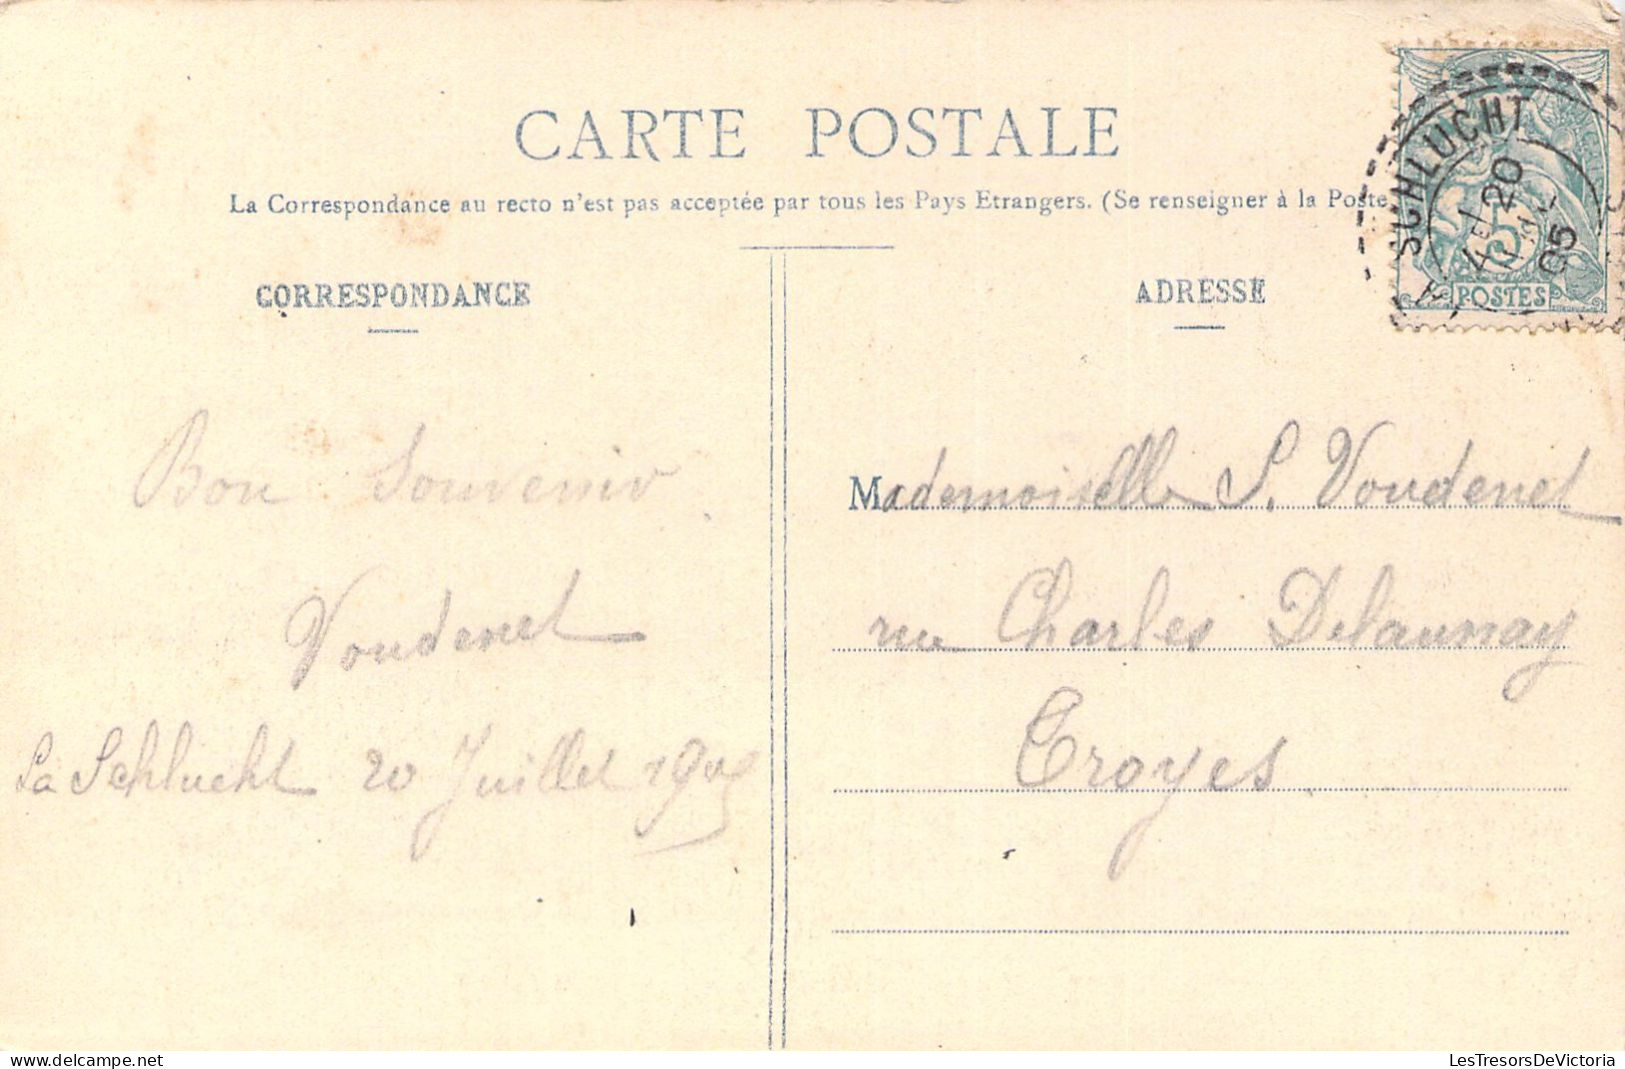 CARTE POSTALE
La Correspondance au recto n'est pas acceptée par tous les Pays Etrangers. (Se renseigner à la Poste
CORRESPONDANCE
Bon Souvenir
Voudenet
La Schlucht 20 Juillet 1905
ADRESSE
Mademoiselle S. Voudenet
rue Charles Delaunay
Troyes
SCHLUCHT
20
05
5
POSTES
LesTresorsDeVictoria.com